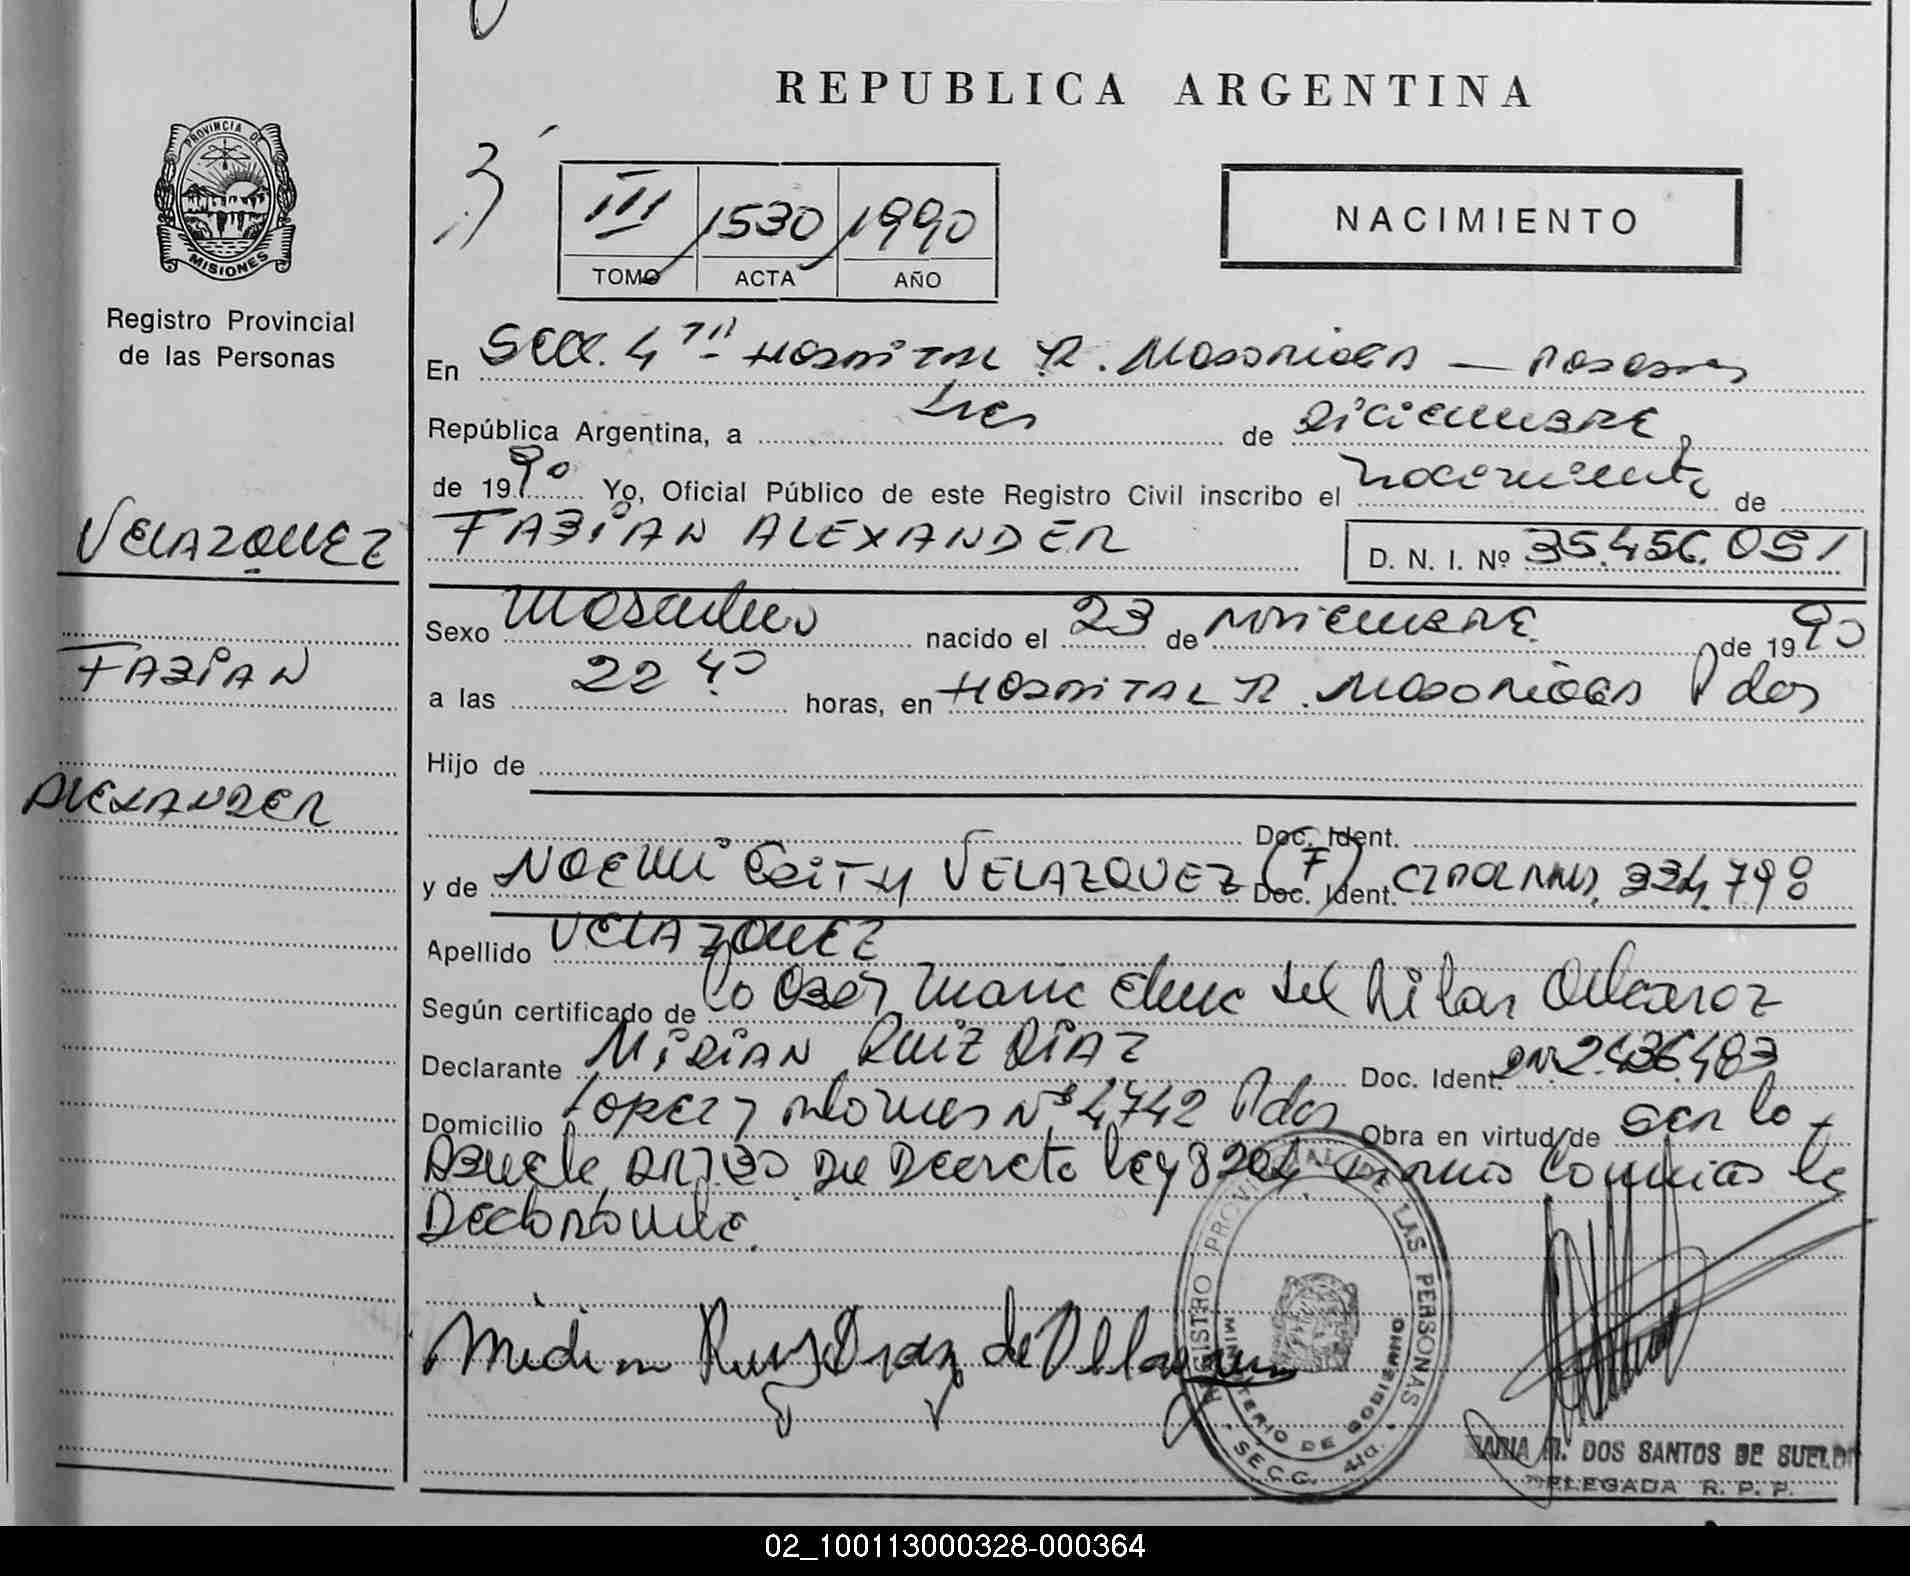 REPUBLICA ARGENTINA
PROVINCIA DE
MISIONES
Registro Provincial
de las Personas
III 1530 1990
TOMO ACTA AÑO
NACIMIENTO
En Secc. 4ta Hospital R. Madariaga — Posadas
República Argentina, a tres de Diciembre
de 1990 Yo, Oficial Público de este Registro Civil inscribo el nacimiento de
VELAZQUEZ
FABIAN ALEXANDER D. N. I. Nº 35.456.051
Sexo Masculino nacido el 23 de Noviembre de 1990
FABIAN
a las 22 40 horas, en Hospital R. Madariaga Pdas
Hijo de
ALEXANDER
Doc. Ident.
y de NOEMI VELAZQUEZ (F) Doc. Ident. 334.798
Apellido VELAZQUEZ
Según certificado de la Obst. Maria Elena del Pilar
Declarante MIRIAN RUIZ DIAZ Doc. Ident. 2.436.483
Domicilio Lopez y Planes Nº 4742 Pdas Obra en virtud de ser la
Abuela Art. 30 Del Decreto Ley 8204 firma la
Declarante.
Miriam Ruiz Diaz de
REGISTRO PROVINCIAL DE LAS PERSONAS
MINISTERIO DE GOBIERNO
SECC. 4ta.
MARIA M. DOS SANTOS DE SUELDO
DELEGADA R. P. P.
02_100113000328-000364